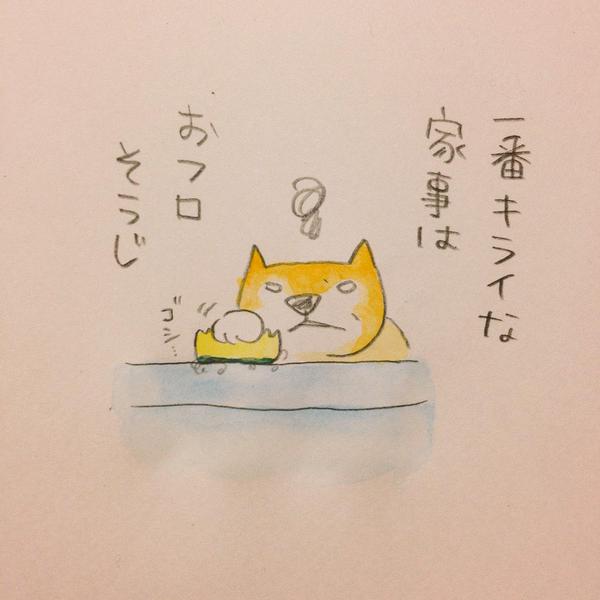 一番キライな
家事は
おフロ
そうじ
ゴシ…